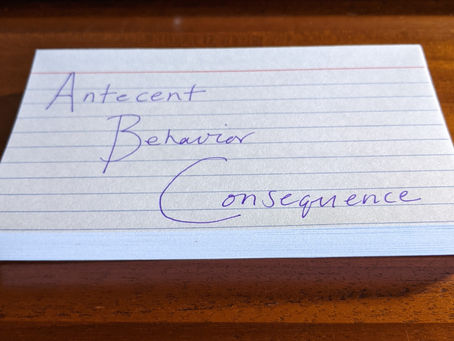 Antecent
Behavior
Consequence